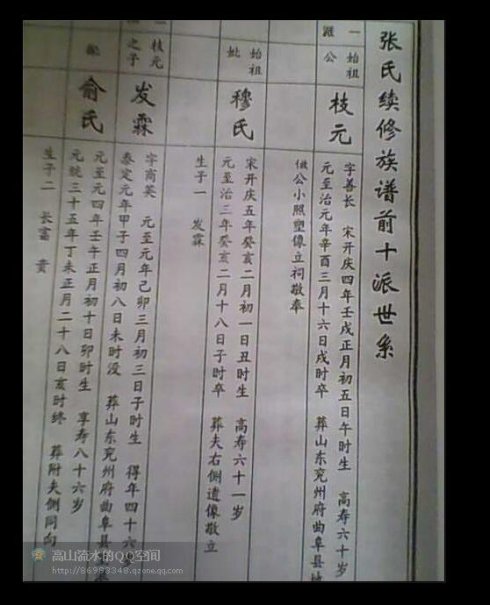 张氏续修族谱前十派世系
一派
始祖公
枝元
字善长 宋开庆四年壬戌正月初五日午时生 高寿六十岁
元至治元年辛酉三月十六日戌时卒 葬山东兖州府曲阜县
公小照塑像立祠敬奉
始祖妣
穆氏
宋开庆五年癸亥二月初一日丑时生 高寿六十一岁
元至治三年癸亥二月十八日子时卒 葬夫右侧遗像敬立
生子一 发霖
枝元之子
发霖
字商英 元至元年己卯三月初三日子时生 得年四十六
泰定元年甲子四月初八日未时没 葬山东兖州府曲阜县
配
俞氏
元至元四年壬午正月初十日卯时生 享寿八十六岁
元统三十五年丁未正月二十八日亥时终 葬附夫侧同向
生子二 长富 贵
高山流水的QQ空间
http://86983348.qzone.qq.com